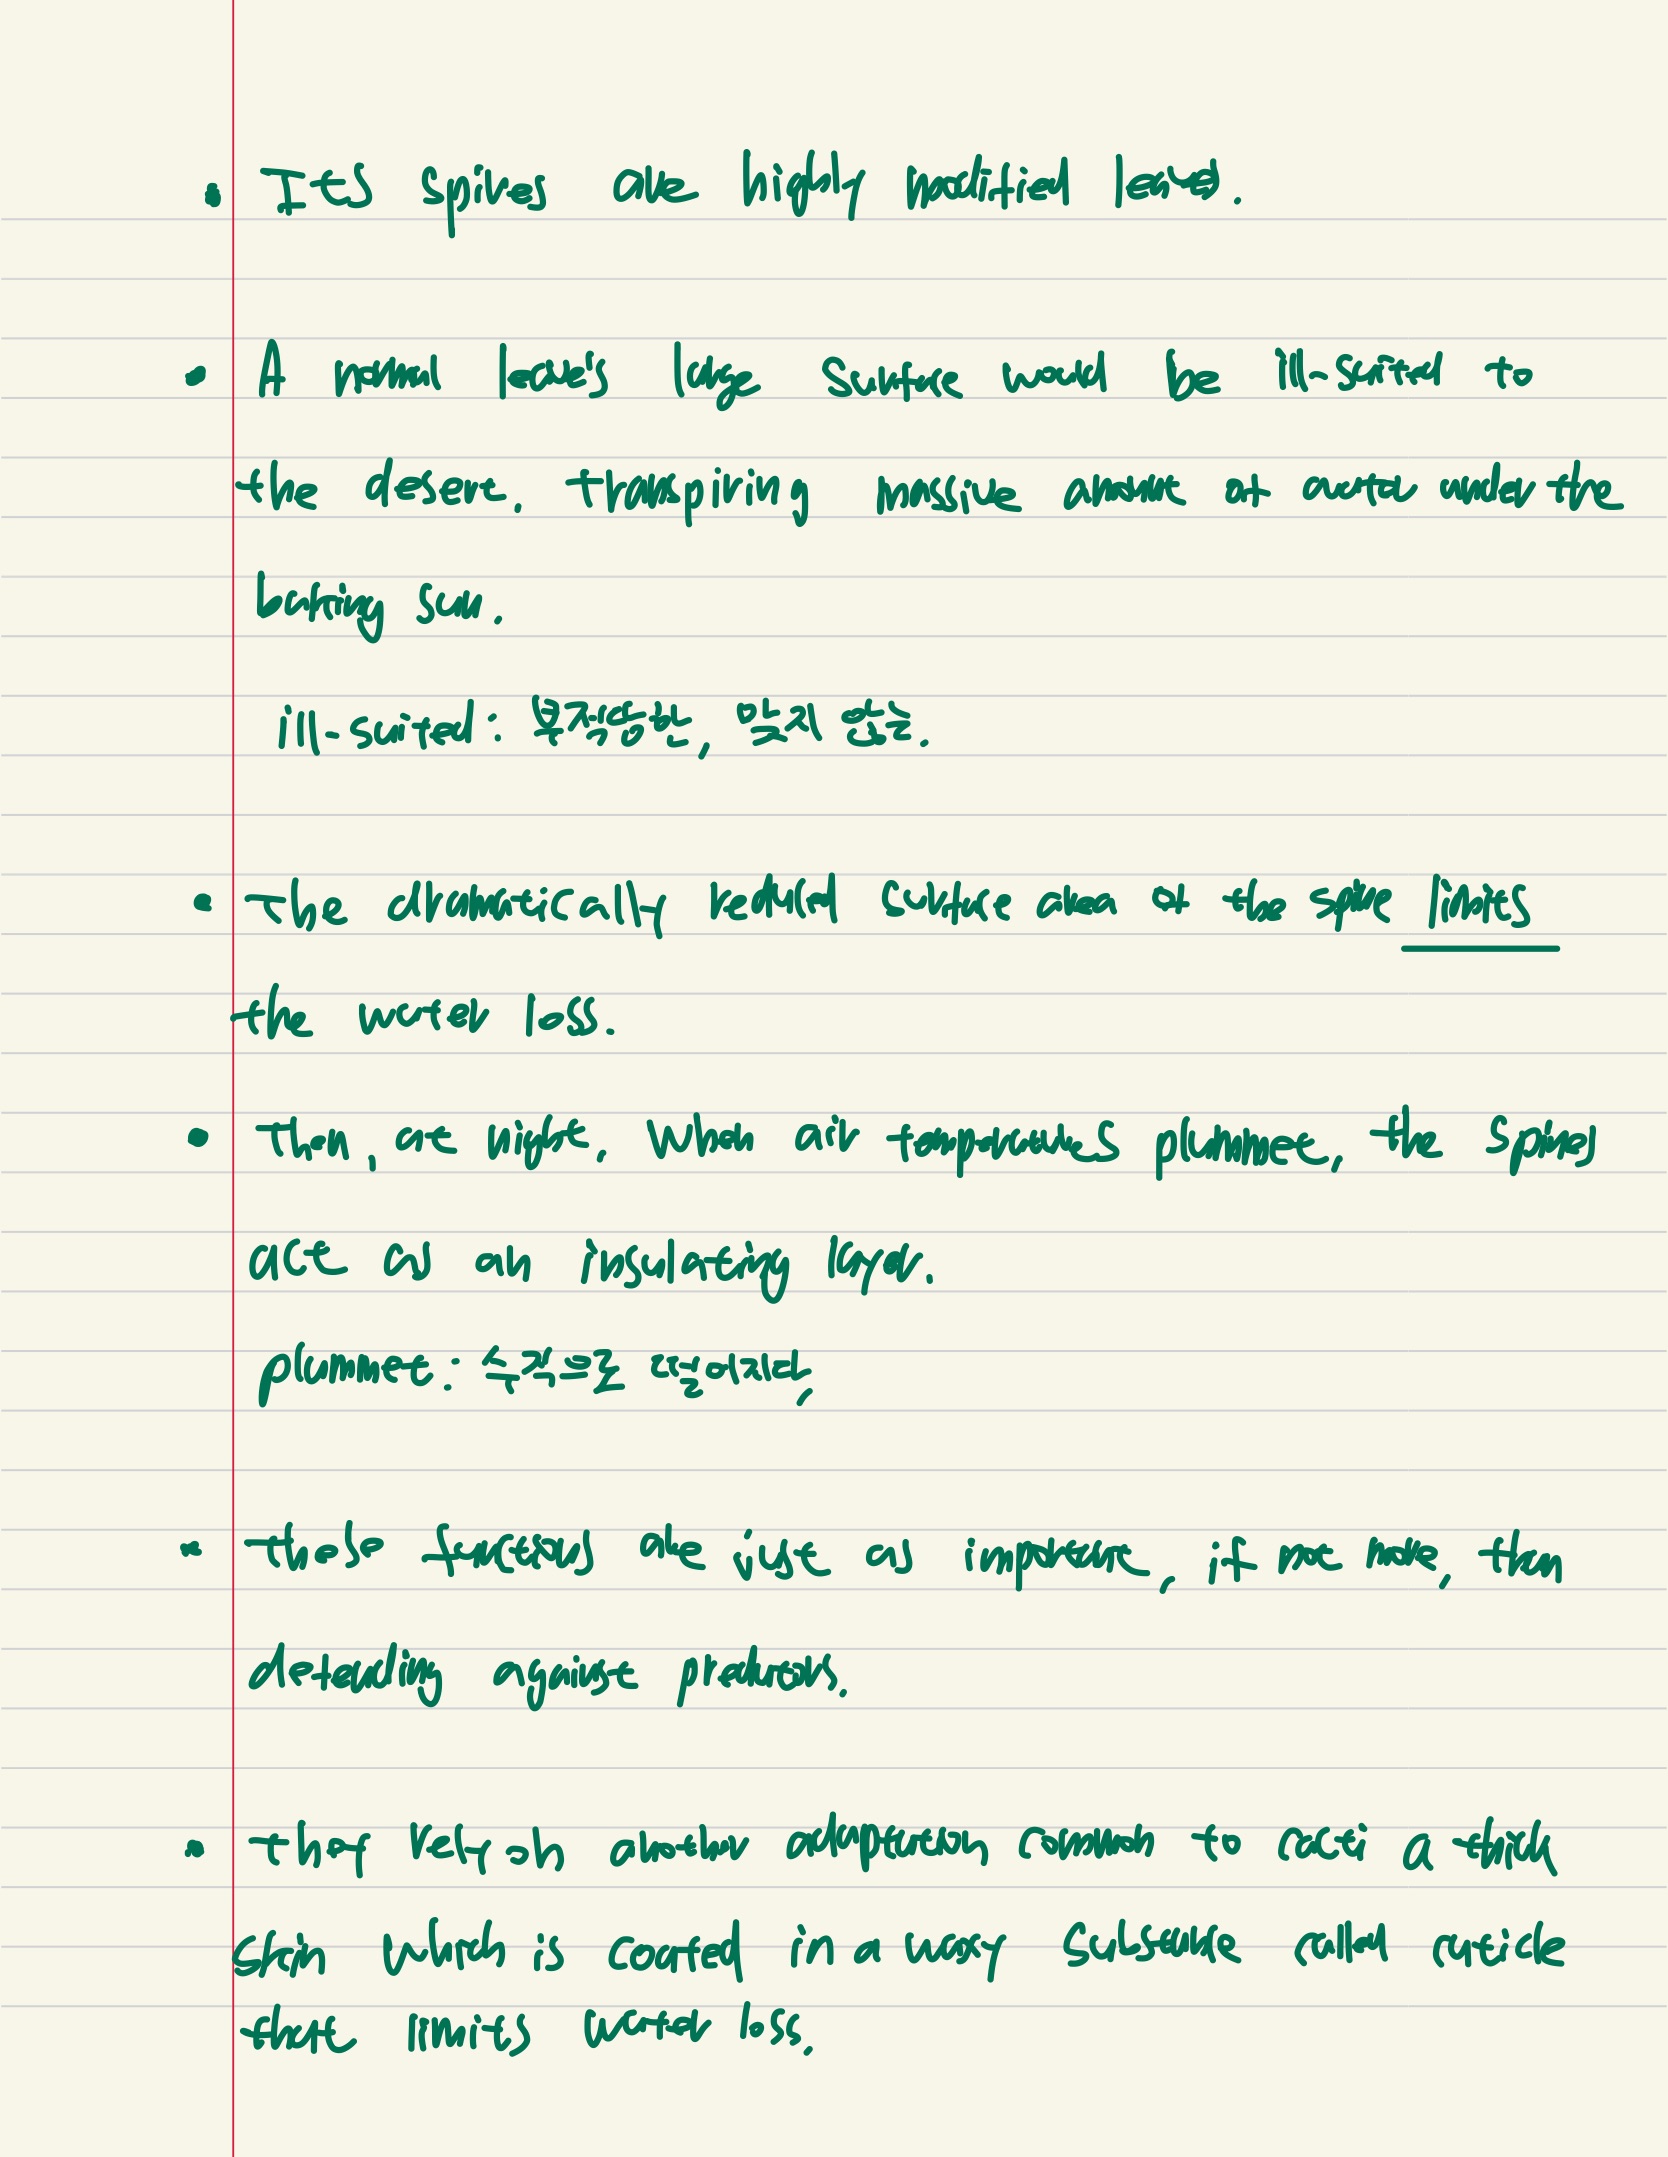 • Its spines are highly modified leaves.
• A normal leave's large surface would be ill-suited to
the desert, transpiring massive amount of water under the
baking sun.
ill-suited:부적응한, 맞지 않는.
• The dramatically reduced surface area of the spine limits
the water loss.
• Then, at night, when air temperatures plummet, the spines
act as an insulating layer.
plummet: 수직으로 떨어지다,
• these functions are just as important, if not more, than
defending against predators.
• they rely on another adaptation common to cacti a thick
skin which is coated in a waxy substance called cuticle
that limits water loss.